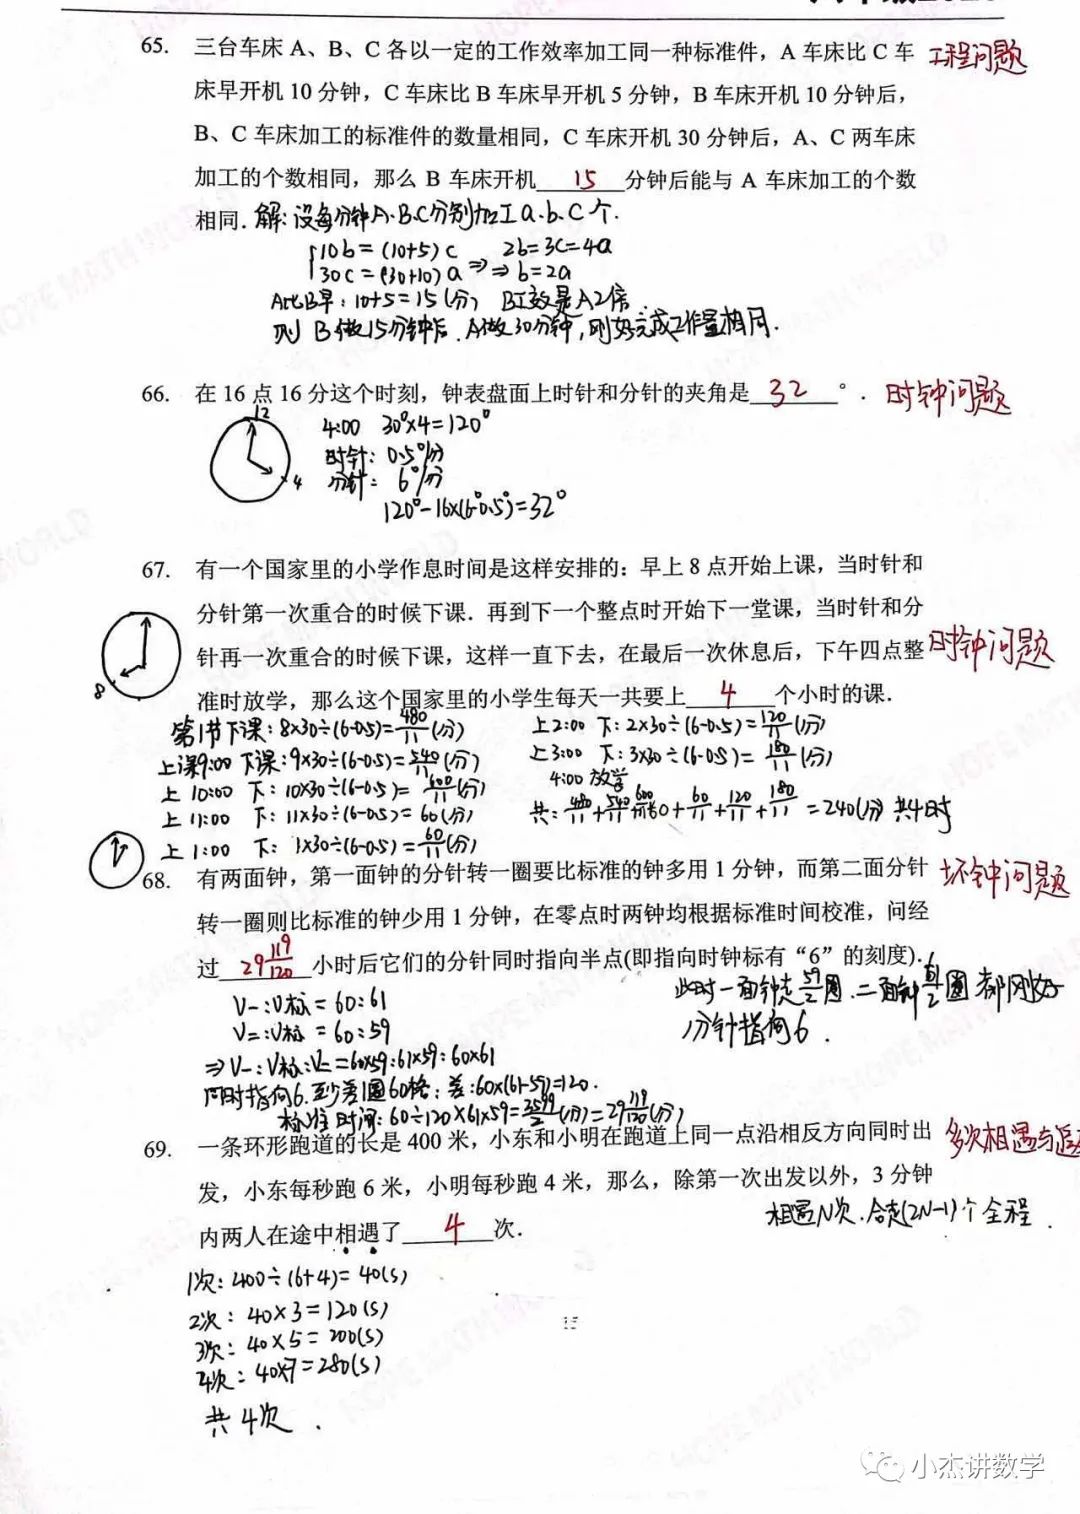 65. 三台车床 A、B、C 各以一定的工作效率加工同一种标准件，A 车床比 C 车 工程问题
床早开机 10 分钟，C 车床比 B 车床早开机 5 分钟，B 车床开机 10 分钟后，
B、C 车床加工的标准件的数量相同，C 车床开机 30 分钟后，A、C 两车床
加工的个数相同，那么 B 车床开机 15 分钟后能与 A 车床加工的个数
相同. 解:设每分钟A.B.C分别加工a.b.c个.
10b=(10+5)c 2b=3c=4a
30c=(30+10)a ⇒ ⇒ b=2a
A比B早: 10+5=15(分) B工效是A2倍
则 B做15分钟后, A做30分钟, 刚好完成工作量相同.
66. 在 16 点 16 分这个时刻，钟表盘面上时针和分针的夹角是 32 °. 时钟问题
12
4:00 30°×4=120°
时针: 0.5°/分
4 分针: 6°/分
120°-16×(6°-0.5°)=32°
67. 有一个国家里的小学作息时间是这样安排的：早上 8 点开始上课，当时针和
分针第一次重合的时候下课．再到下一个整点时开始下一堂课，当时针和分
针再一次重合的时候下课，这样一直下去，在最后一次休息后，下午四点整 时钟问题
8 准时放学，那么这个国家里的小学生每天一共要上 4 个小时的课．
第1节下课: 8×30÷(6-0.5)=480/11(分) 上2:00 下: 2×30÷(6-0.5)=120/11(分)
上课9:00 下课: 9×30÷(6-0.5)=540/11(分) 上3:00 下: 3×30÷(6-0.5)=180/11(分)
上 10:00 下: 10×30÷(6-0.5)=600/11(分) 4:00 放学
上 11:00 下: 11×30÷(6-0.5)=60(分) 共: 480/11+540/11+600/11+60+60/11+120/11+180/11=240(分) 共4时
上 1:00 下: 1×30÷(6-0.5)=60/11(分)
68. 有两面钟，第一面钟的分针转一圈要比标准的钟多用 1 分钟，而第二面分针 坏钟问题
转一圈则比标准的钟少用 1 分钟，在零点时两钟均根据标准时间校准，问经
过 29 119/120 小时后它们的分针同时指向半点(即指向时钟标有“6”的刻度).
此时一面钟走59/2圈.二面钟61/2圈 都刚好
分针指向6.
V一:V标=60:61
V二:V标=60:59
⇒V一:V标:V二=60×59:61×59:60×61
同时指向6.至少差1圈60格; 差:60×(61-59)=120.
标准时间: 60÷120×61×59=3599/2(分)=29 119/120(分)
69. 一条环形跑道的长是 400 米，小东和小明在跑道上同一点沿相反方向同时出 多次相遇与追
发，小东每秒跑 6 米，小明每秒跑 4 米，那么，除第一次出发以外，3 分钟
内两人在途中相遇了 4 次. 相遇N次.合走(2N-1)个全程.
1次: 400÷(6+4)=40(s)
2次: 40×3=120(s)
3次: 40×5=200(s)
4次: 40×7=280(s)
共4次.
小杰讲数学